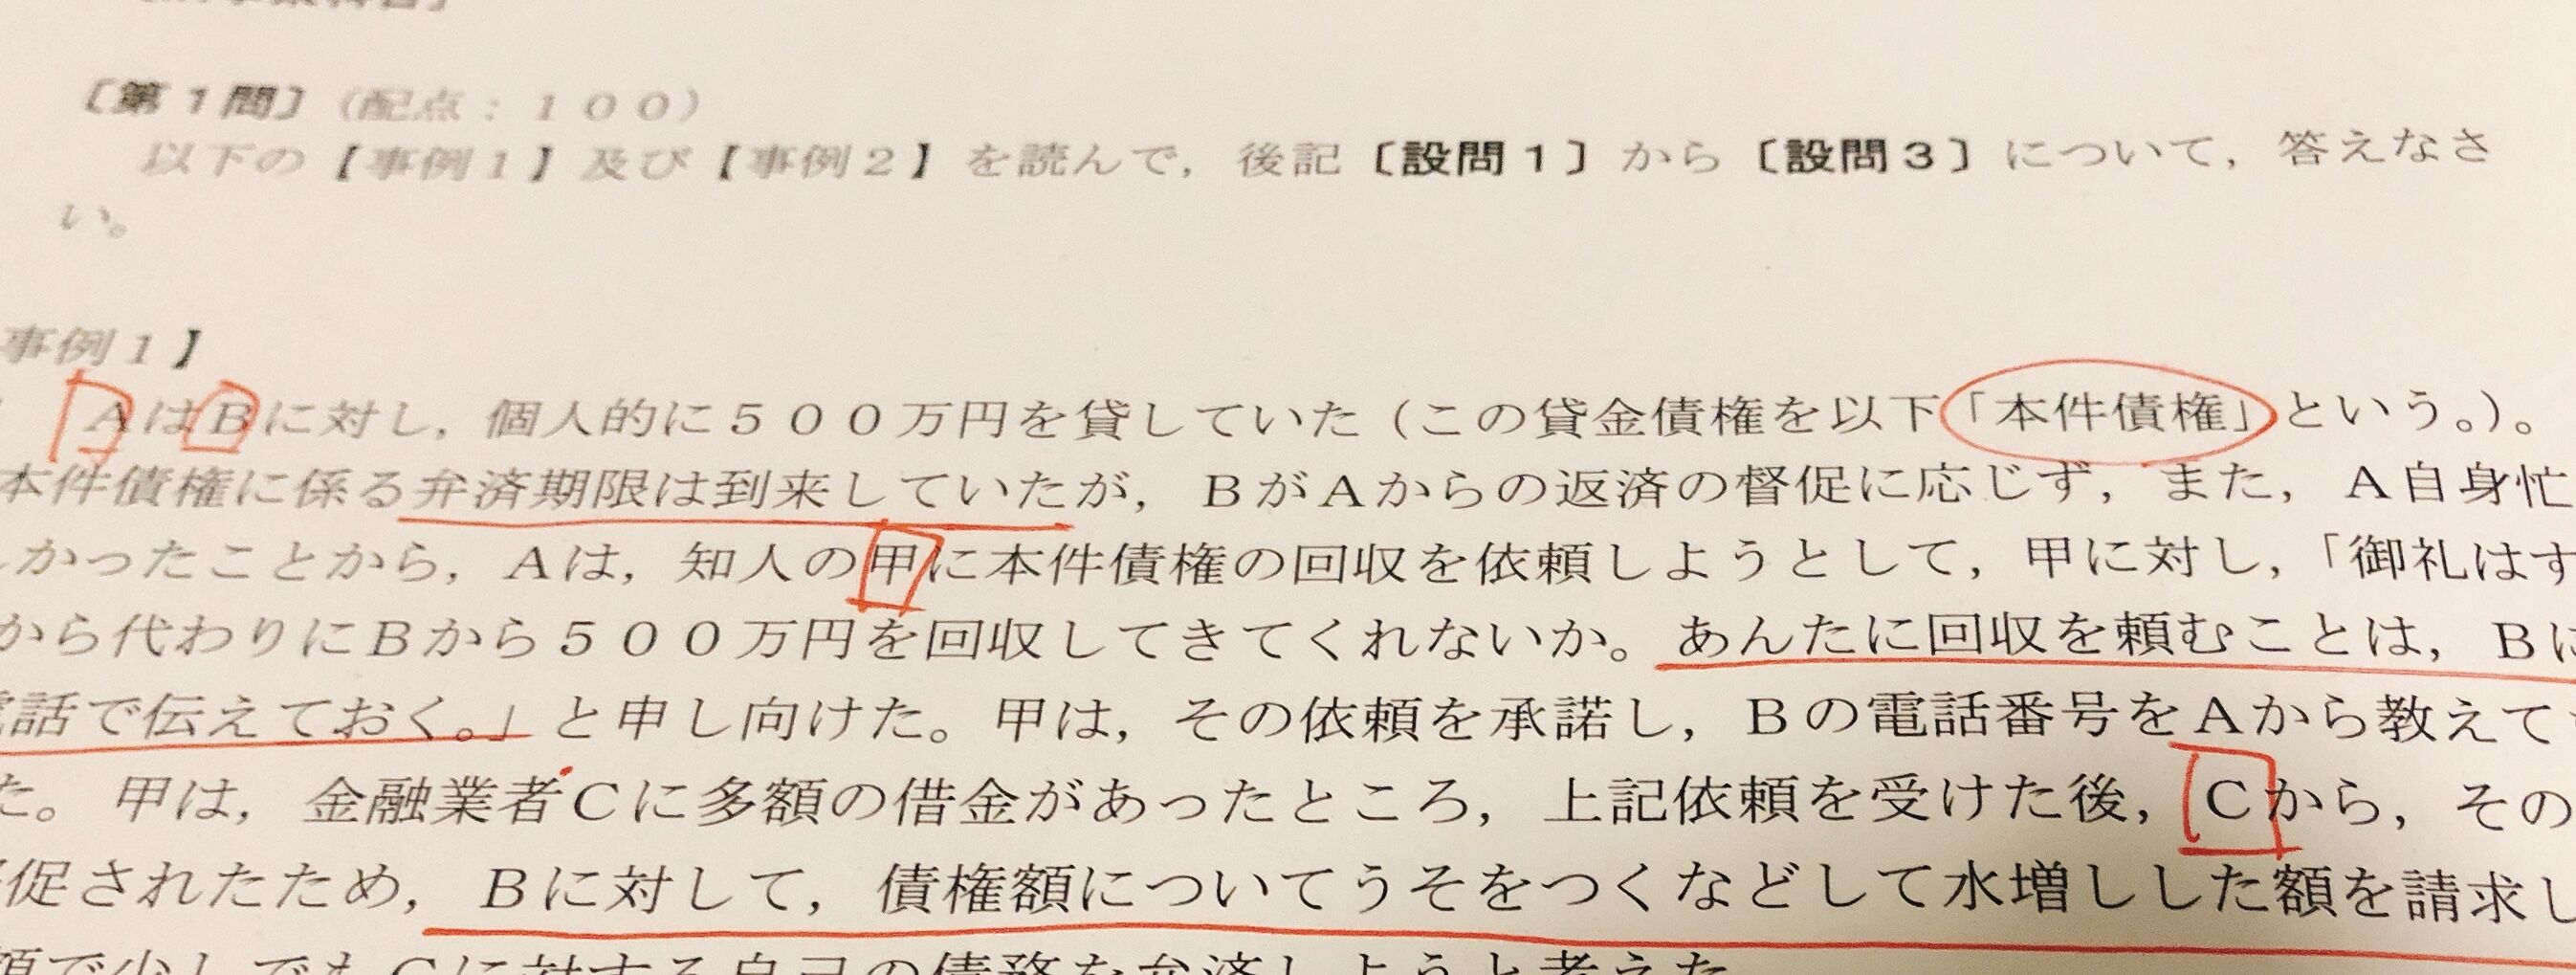 〔第１問〕（配点：１００）
以下の【事例１】及び【事例２】を読んで，後記〔設問１〕から〔設問３〕について，答えなさ
い。
事例１】
ＡはＢに対し，個人的に５００万円を貸していた（この貸金債権を以下「本件債権」という。）。
本件債権に係る弁済期限は到来していたが，ＢがＡからの返済の督促に応じず，また，Ａ自身忙
しかったことから，Ａは，知人の甲に本件債権の回収を依頼しようとして，甲に対し，「御礼はす
から代わりにＢから５００万円を回収してきてくれないか。あんたに回収を頼むことは，Ｂに
電話で伝えておく。」と申し向けた。甲は，その依頼を承諾し，Ｂの電話番号をＡから教えて
た。甲は，金融業者Ｃに多額の借金があったところ，上記依頼を受けた後，Ｃから，その
促されたため，Ｂに対して，債権額についてうそをつくなどして水増しした額を請求し
額で少しでもＣに対する自己の債務を弁済しようと考えた